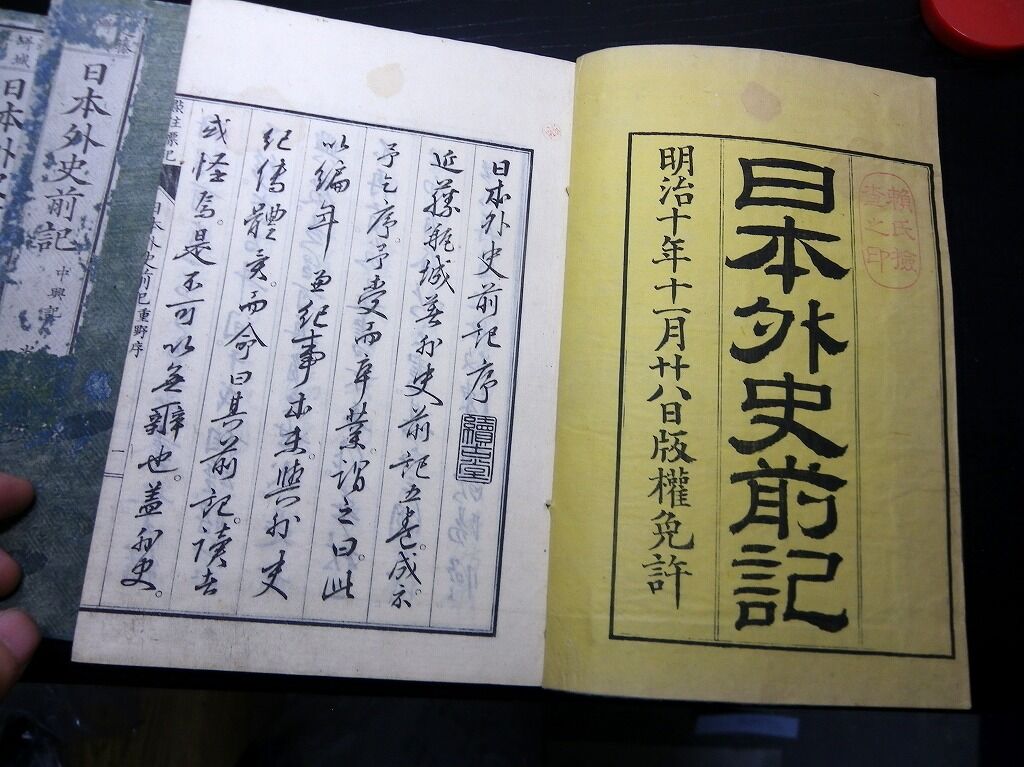 賴氏撿
查之印
日本外史前記
明治十年十一月廿八日版權免許
日本外史前記序
近藤瓶城著外史前記五卷。成示
予乞序。予受而卒業。謂之曰。此
以編年兼紀事本末。與外史
紀傳體異。而命曰其前記。讀者
或怪焉。是不可以無辭也。蓋外史。
註標記 日本外史前記重野序 一
日本外史前記 中興記
日本外史